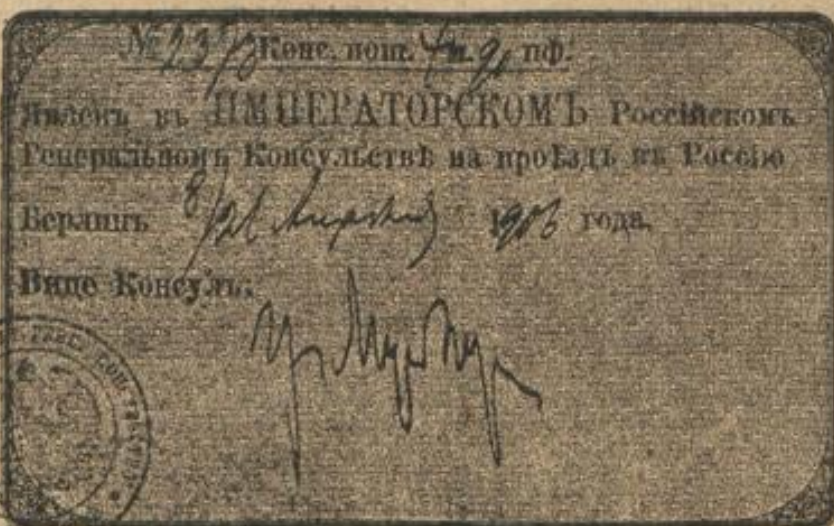 № 23 Конс. пош. 4 м. 90 пф.
Явленъ въ ИМПЕРАТОРСКОМЪ Россійскомъ
Генеральномъ Консульствѣ на проѣздъ въ Россію
Берлинъ 8/21 Апрѣля 1906 года.
Вице Консулъ: